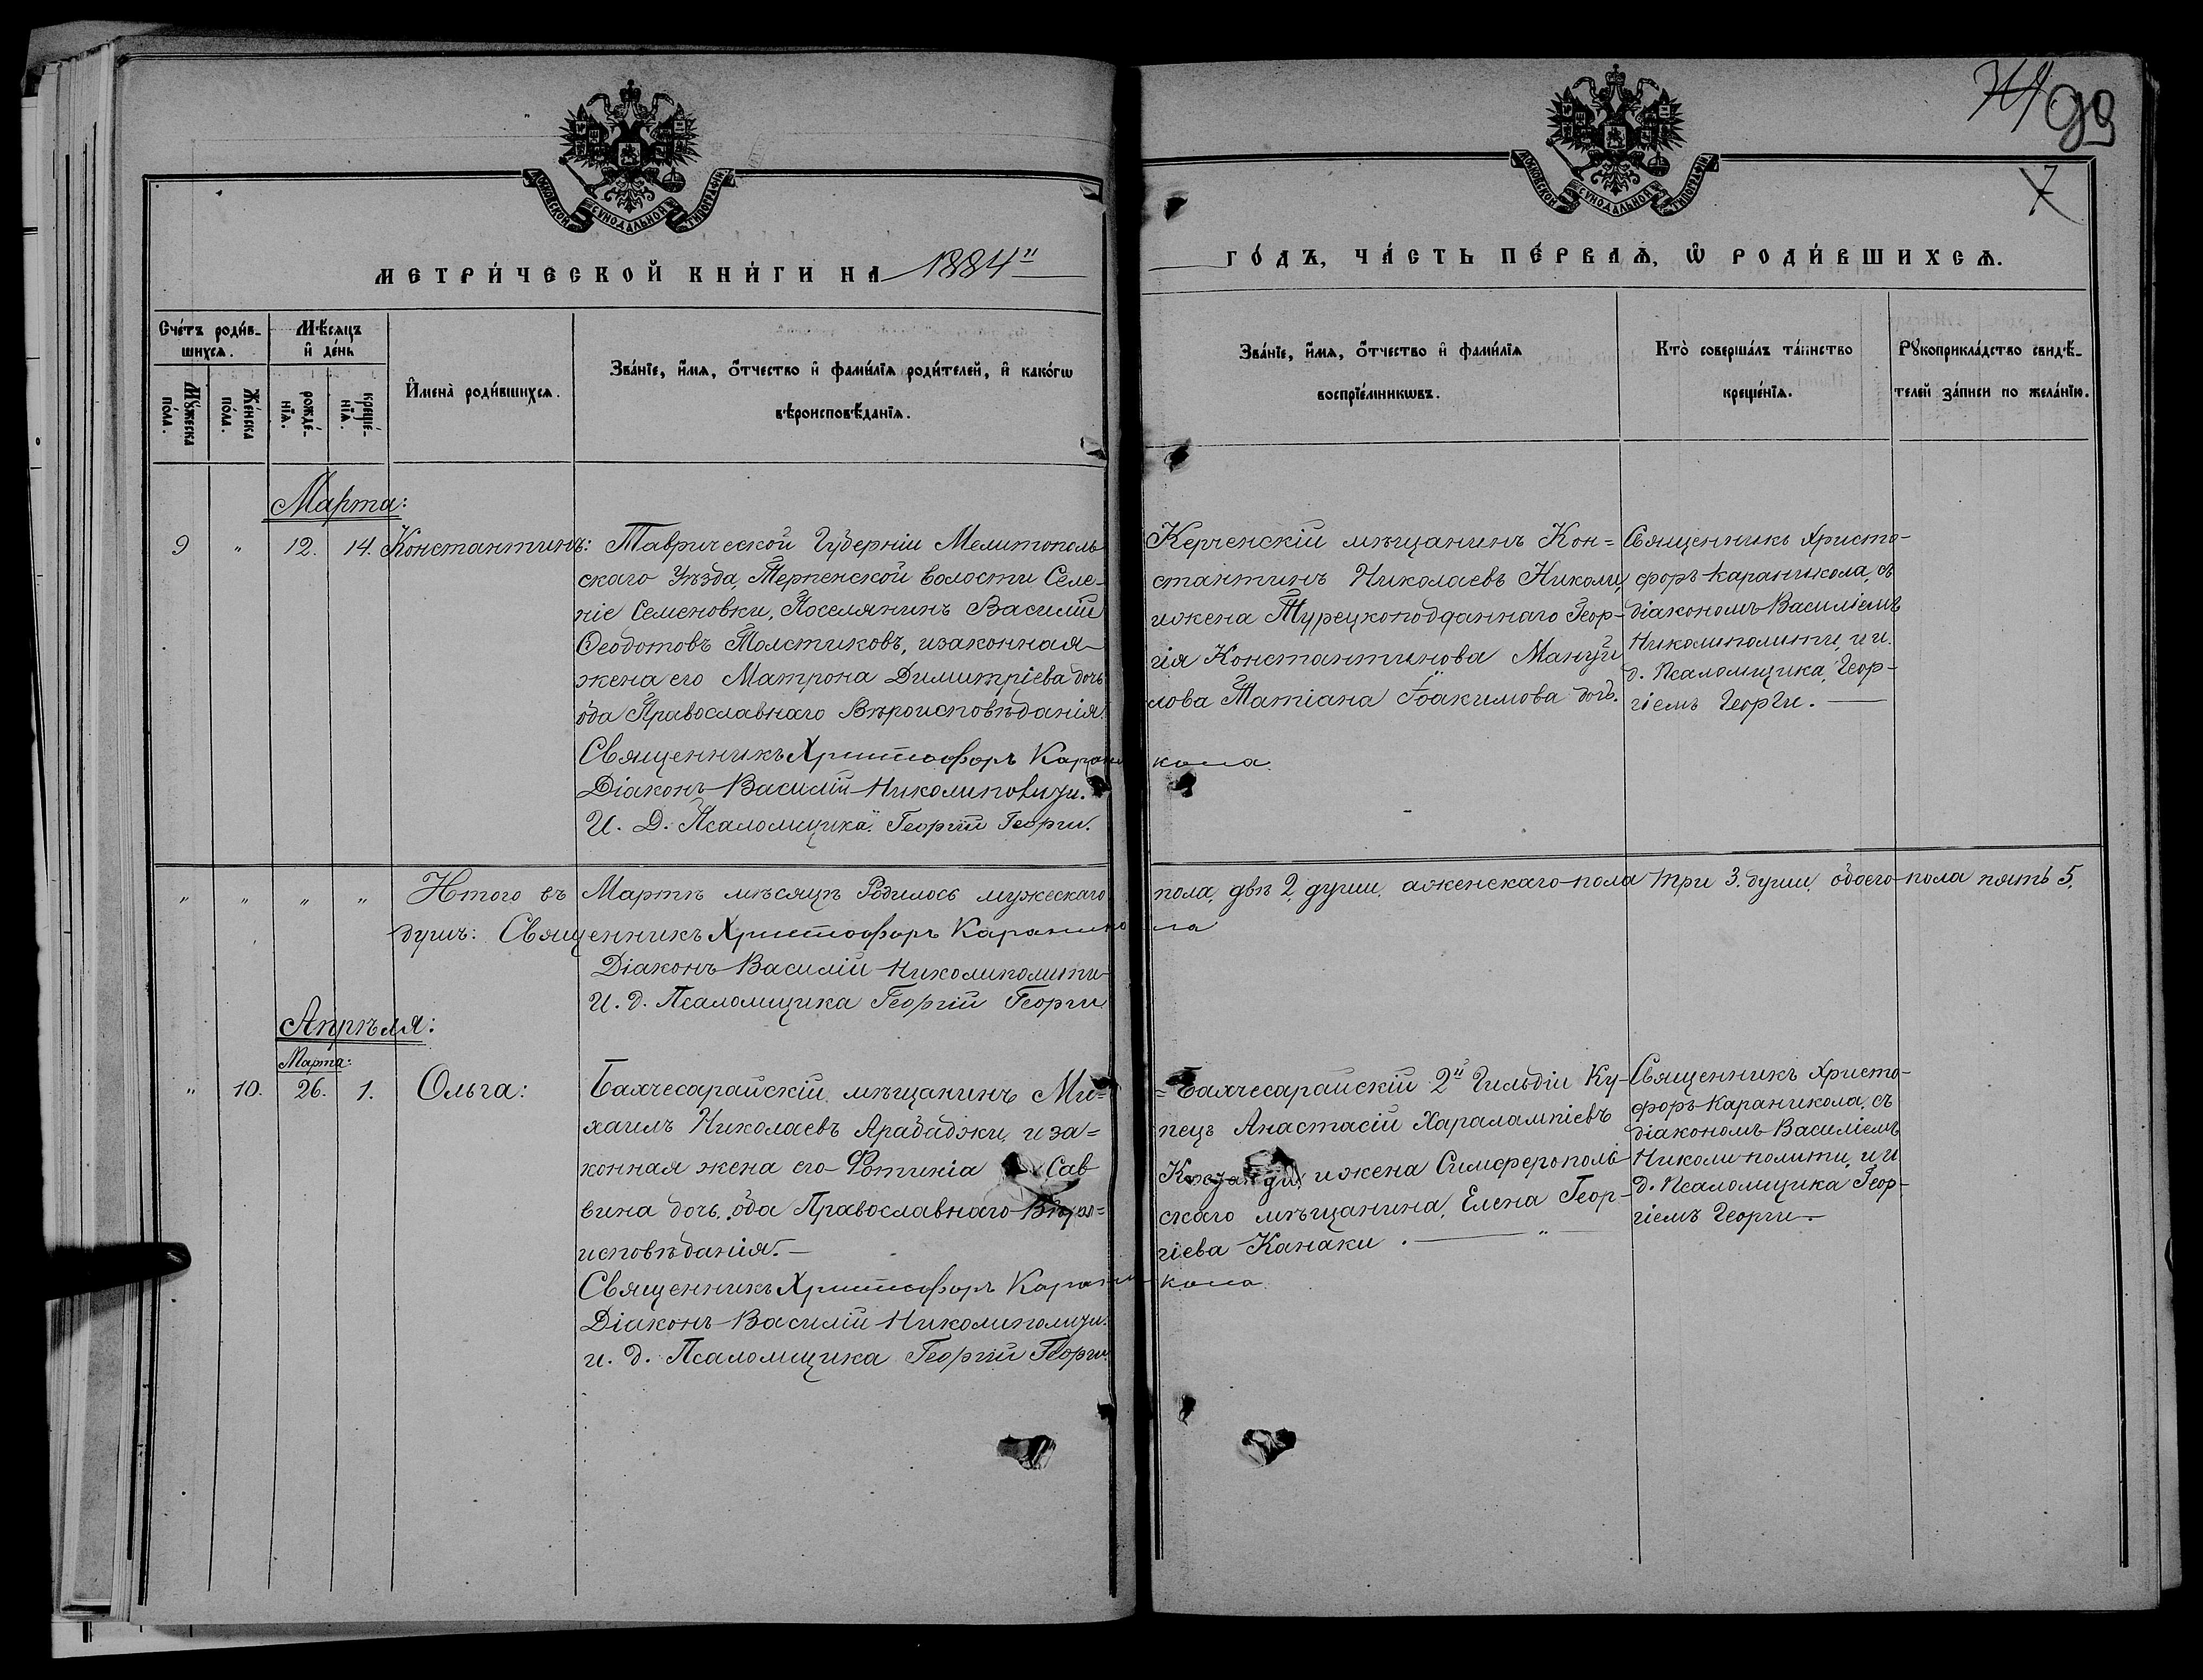 74 99
7
МОСКОВСКОЙ СѴНОДАЛЬНОЙ ТИПОГРАФІИ
МОСКОВСКОЙ СѴНОДАЛЬНОЙ ТИПОГРАФІИ
МЕТРИ́ЧЕСКОЙ КНИ́ГИ НА 1884й
ГО́ДЪ, ЧА́СТЬ ПЕ́РВАѦ, Ѡ РОДИ́ВШИХСѦ.
Сче́тъ роди́в-
шихсѧ.
Мꙋ́жеска по́ла.
Же́нска по́ла.
Мѣ́сѧцъ и҆ де́нь
рожде́-нїѧ.
креще́-нїѧ.
И҆мена̀ роди́вшихсѧ.
Зва́нїе, и҆́мѧ, ѻ҆́тчество и҆ фами́лїѧ роди́телей, и҆ како́гѡ
вѣроисповѣ́данїѧ.
Зва́нїе, и҆́мѧ, ѻ҆́тчество и҆ фами́лїѧ
воспрїе́мникѡвъ.
Кто̀ соверша́лъ та́инство
креще́нїѧ.
Рꙋкоприкла́дство свидѣ́-
телей за́писи по жела́нїю.
Марта:
9 " 12. 14. Константинъ: Таврической Губерніи Мелитополь
скаго Уѣзда, Терпенской волости Селе-
ніе Семеновки, Поселянинъ Василій
Ѳеодотовъ Толстиковъ, изаконная
жена его Матрона Димитріева дочь
оба Православнаго Вѣроисповѣданія.
Священникъ Христофоръ Карани
Діаконъ Василій Николиполити.
И. Д. Псаломщика: Георгій Георги.
Керченскій мѣщанинъ Кон=
стантинъ Николаевъ Николи,
ижена Турецкоподданнаго Геор-
гія Константинова Мануй
лова Татіана Іоакимова дочь.
кола.
Священникъ Христо-
форъ Караникола, съ
діакономъ Василіемъ
Николиполити, и и.
д. Псаломщика, Геор-
гіемъ Георги.
" " " " Итого въ Мартѣ мѣсяцѣ Родилось мужескаго пола, двѣ 2, души, аженскаго пола три 3. души, обоего пола пять 5.
душъ: Священникъ Христофоръ Караникола
Діаконъ Василій Николиполити
И. д. Псаломщика Георгій Георги
Апрѣля:
Марта:
" 10. 26. 1. Ольга: Бахчесарайскій мѣщанинъ Ми=
хаилъ Николаевъ Арабаджи, и за=
конная жена его Фотинія Сав
вина дочь, оба Православнаго Вѣро=
исповѣданія.
Священникъ Христофоръ Карани
Діаконъ Василій Николиполити.
и. д. Псаломщика Георгій Георги.
= Бахчесарайскій 2й Гильдіи Ку-
пецъ Анастасій Харалампіевъ
ижена Симферополь
скаго мѣщанина, Елена Геор-
гіева Канаки.
кола.
Священникъ Христо-
форъ Караникола, съ
діакономъ Василіемъ
Николиполити, и И
д. Псаломщика Геор-
гіемъ Георги.